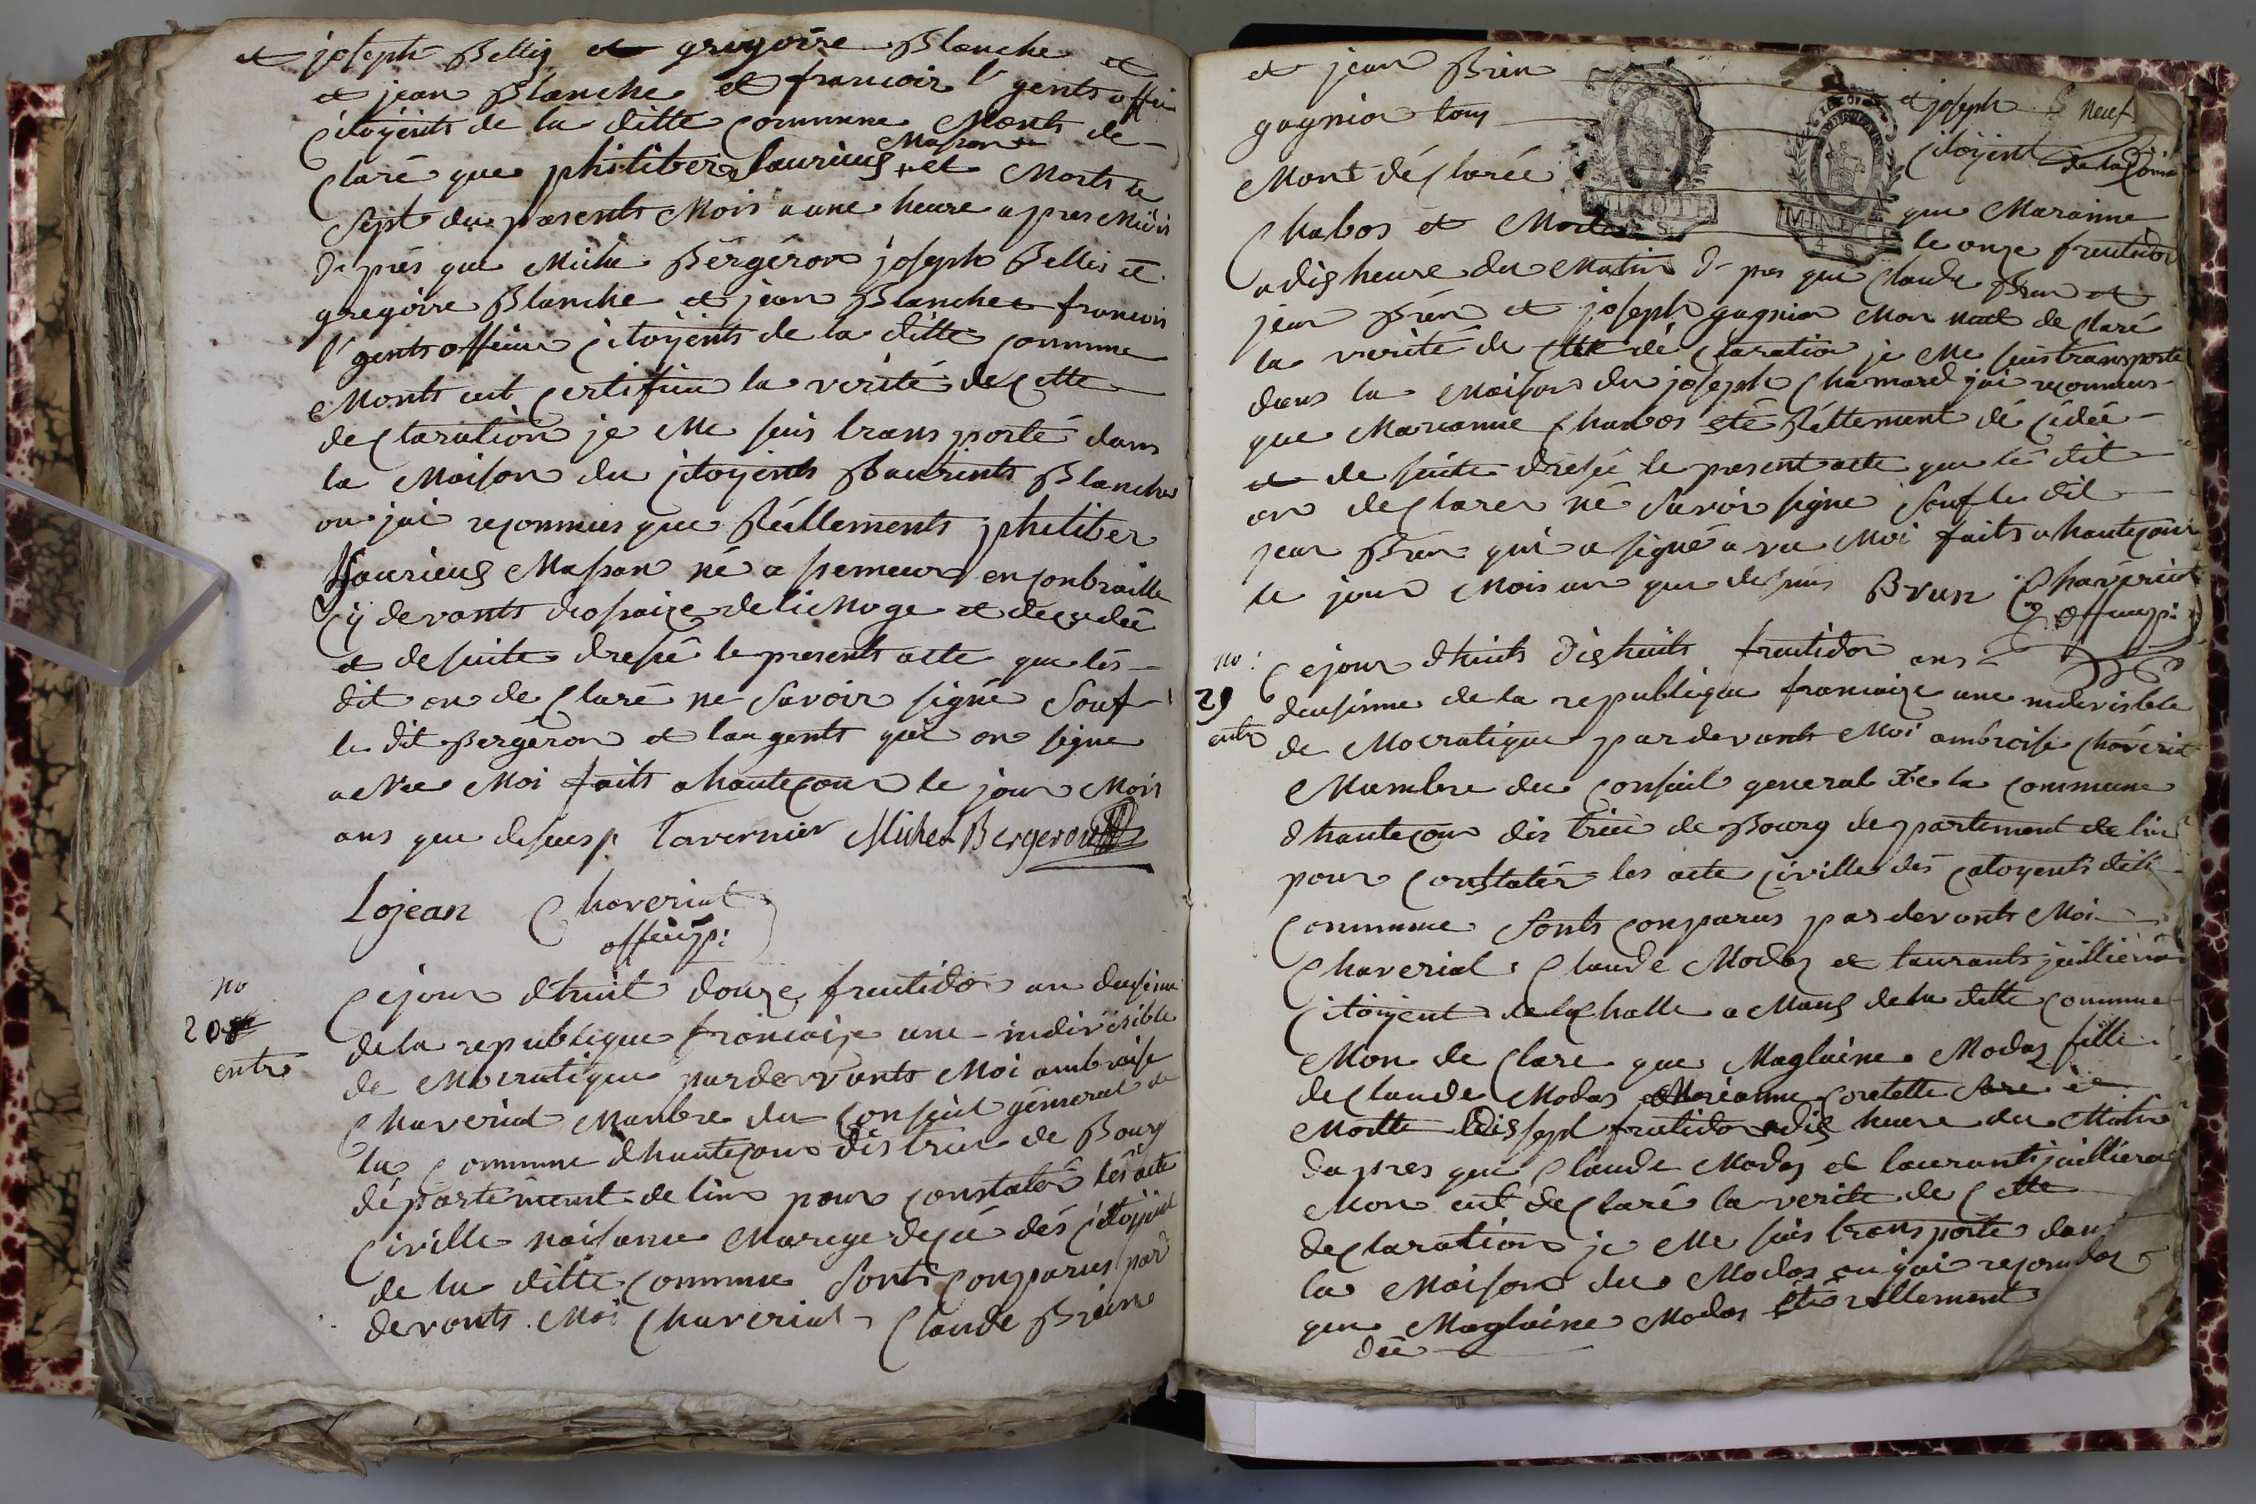 et joseph Bellij et gregoire Blanche et
et jean Blanche et francoir l' gents offi
Citoyents de la ditte Commune Monts de-
Claré que philiber laurieus Masson et Morts le
Sept du presents Mois a une heure apres Midi
d- prés que Miche Bérgéron joseph Bellis et
gregoire Blanche et jean Blanche francois
l' gents offeu Citoyents de la ditte commune
Monts eut Certifiee la verité de Cette
declaration je Me suis transporté dans
la Maison du Citoyents Laurints Blanche
ou jai reconnus que Réillements philiber
laurieus Masson né a semeur en Conbraille
Cy devants diosaize de li Moge et decedée
et de suite dresée le presents acte que les
dit on de Claré ne Savoir signe Souf
le dit Bergeron et laugents qui on signe
avee Moi faits a hautecour le jour Mois
ans que desues p. Tavernier Michel Bergeron
Lojean Chaveriat
offi p:
no
208
entr
Cejour dhuit douze frutidor an deusime
de la republique francoize une indivisible
de Mocratique par devants Moi ambroise
Chaveriat Manbre du Conseil géneral de
la Commune dhautecour distric de Bourg
départément de lin pour constatér les acte
Civille naisance Marege decé dés Citoyint
de la ditte Commune Sonts Conparus par
devonts Moi Chaveriat Claude Brien
et jean Brien et joseph
gagnion tous Citoyint de la Comu
neuf
Mont déClarée que Marianne
Chabos et Morte le onze fruitidor
a dis heure du Matin d- pres que Claude Bren et
jean Bren et joseph gagnion Mon de Claré
la verité de Cete dé Claration je Me suis transporté
dans la Maison du joseph Chamard jai reconnus
que Marianne Chabos eté Réllement dé Cédée
et de suite dresée le present acte que le dit
on declarer né Savoir signe Souf le dit
jean Brén qui a signé a ve Moi faits a hautecour
le jour Mois an que desus Brun Chavériat
offi p:
no:
29
entr
Cejour dhuits dishuits frutidor ans
deusime de la republique francoize une indivisible
de Mocratique par devants Moi ambroise Chavériat
Mambre du Conseil general de la Commune
dhautecour dis tric de Bourg département de lin
pour Constatér les acte Civille dés Citoyents dela
Commune Sonts Conparus par devants Moi
Chaveriat Claude Modas et laurants juillieron
Citoyent de la halle a Mans de la ditte Commune
Mon de Clare que Maglaine Modas fille
de Claude Modas Marianne Coretette
Morte ledissept frutidor a dis heure du Matin
da pres que Claude Modas et laurants juillieron
Mon eut de Claré la verite de Cette
declaration je Me suis transporté dans
la Maison du Modas ou jai reconu
que Maglaine Modas eté réllement
dée